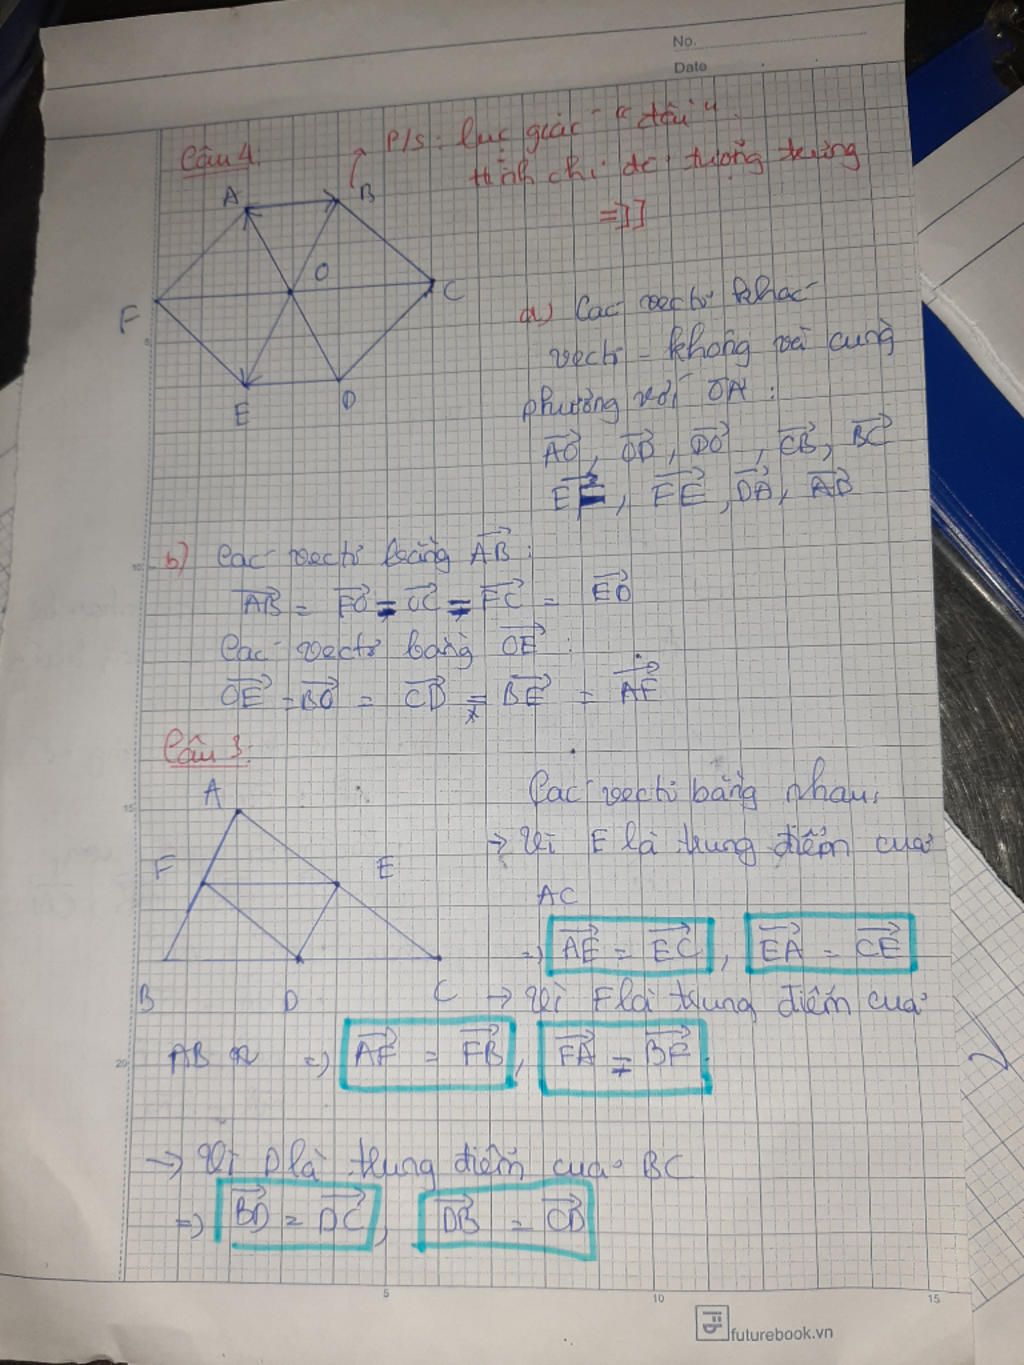 No.
Date
P/S: lục giác "đều"
Câu 4.
tính chỉ đc tượng trưng
=]]
A B
O
F C
E D
a) Các vectơ khác
vectơ - không và cùng
phương với OA :
AO, OD, DO, CB, BC
EF, FE, DA, AD
b) Các vectơ bằng AB :
AB = FO = OC ≠ FC = ED
Các vectơ bằng OE :
OE = BO = CD ≠ BE = AF
Câu 3.
A
Các vectơ bằng nhau,
F E
→ Vì E là trung điểm của
AC
=) AE = EC, EA = CE
B D C
→ Vì F là trung điểm của
AB =) AF = FB, FA = BF.
→ Vì D là trung điểm của BC
=) BD = DC, DB = CD
5
10
15
20
5
10
15
futurebook.vn